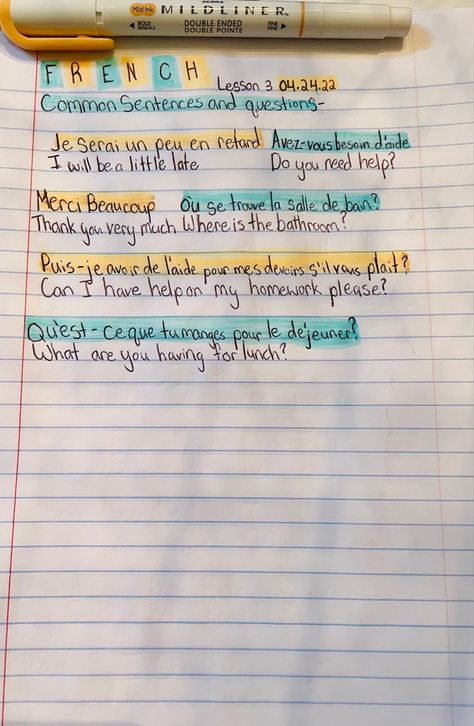 Mild Ink ZEBRA MILDLINER™
BOLD BISEAU DOUBLE ENDED DOUBLE POINTE FINE FINE
FRENCH Lesson 3 04.24.22
Common Sentences and questions-
Je Serai un peu en retard Avez-vous besoin d'aide
I will be a little late Do you need help?
Merci Beaucoup Ou se trouve la salle de bain?
Thank you very much Where is the bathroom?
Puis-je avoir de l'aide pour mes devoirs s'il vous plait?
Can I have help on my homework please?
Qu'est-ce que tu manges pour le dejeuner?
What are you having for lunch?